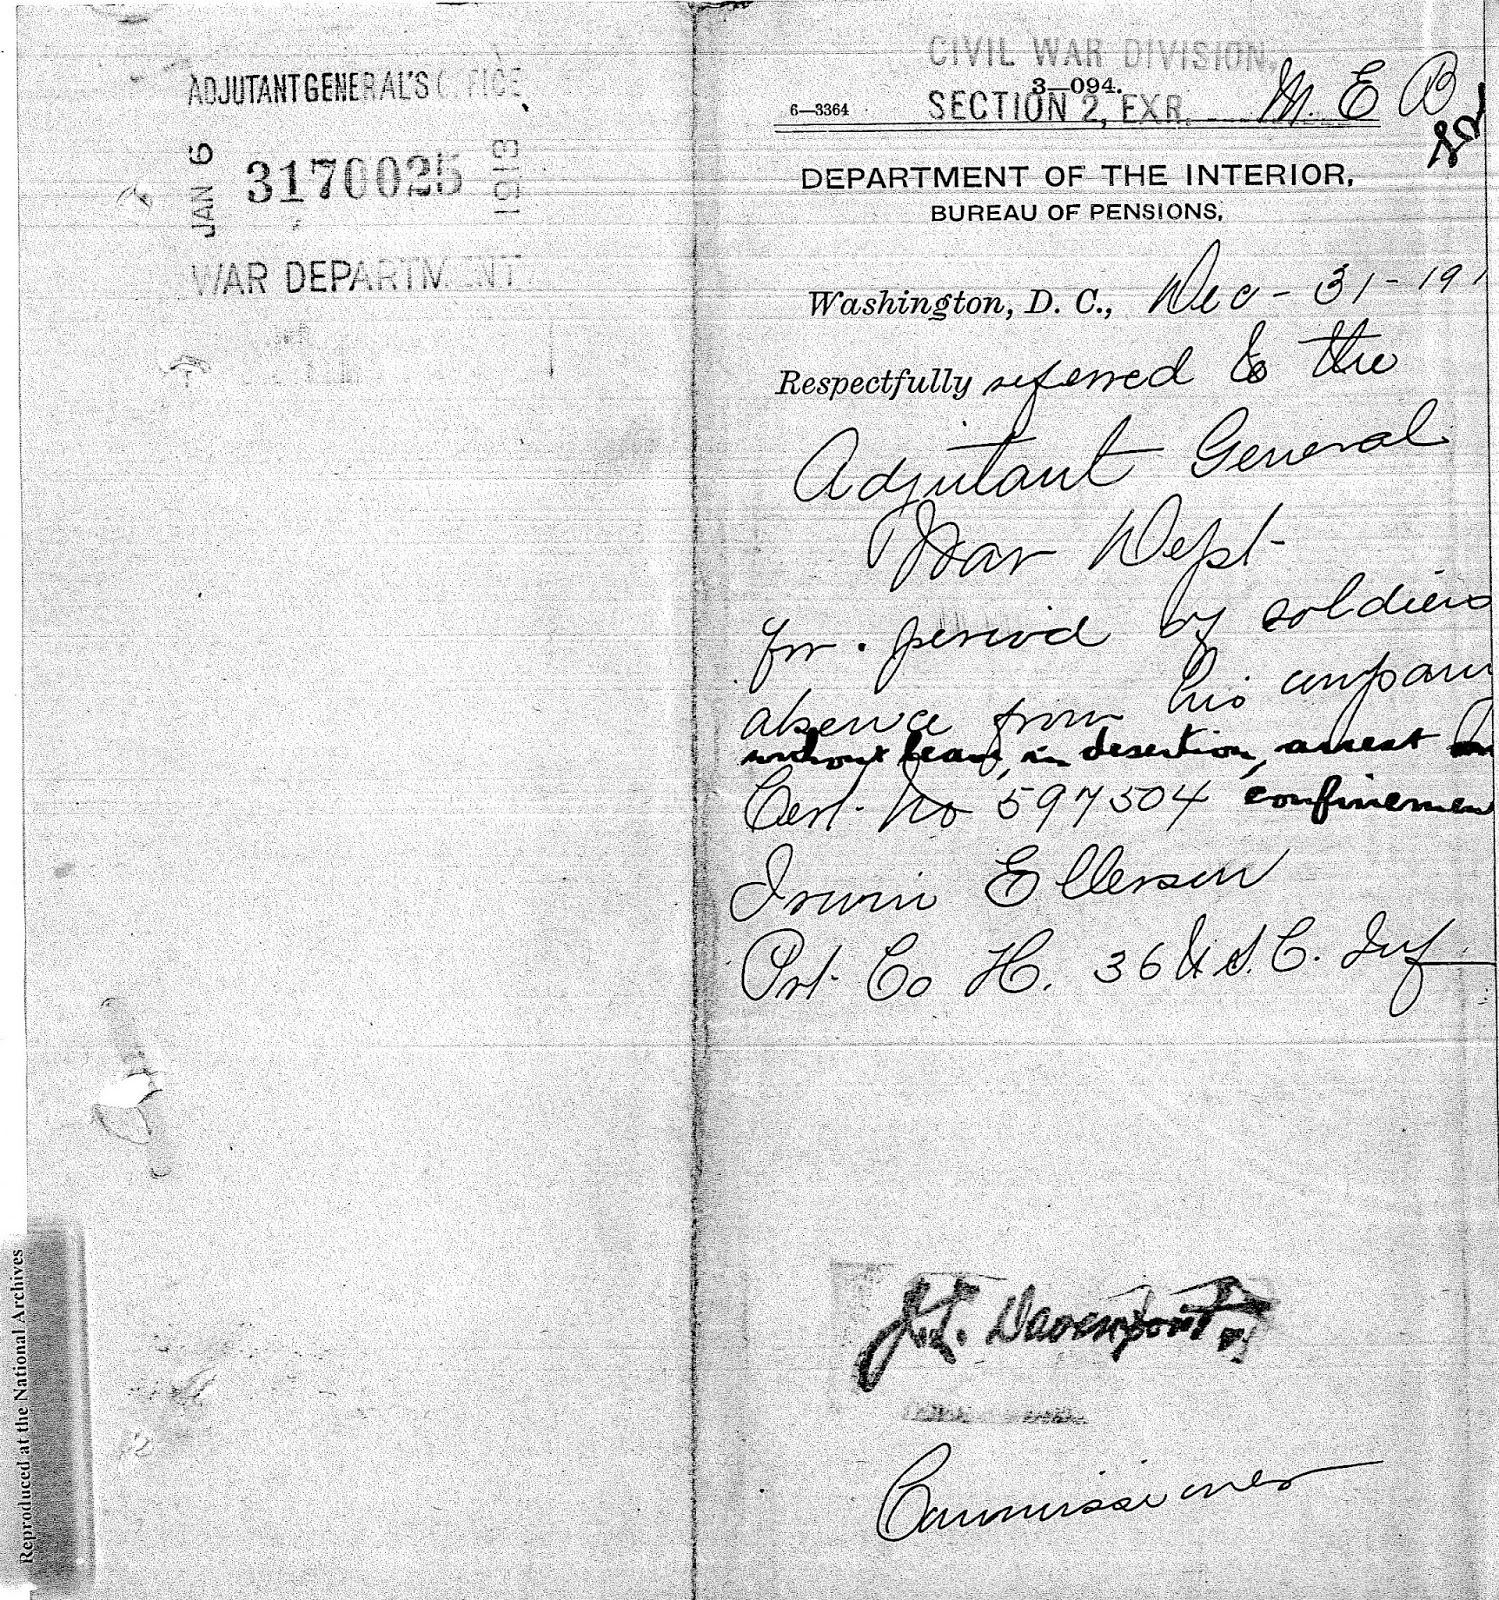 ADJUTANT GENERAL'S OFFICE
JAN 6
3170025
1913
WAR DEPARTMENT
CIVIL WAR DIVISION,
3—094.
6—3364
SECTION 2, EXR.
M. E. B
DEPARTMENT OF THE INTERIOR,
BUREAU OF PENSIONS,
Washington, D. C., Dec - 31 - 191
Respectfully referred to the
Adjutant General
War Dept -
for . period of soldiers
absence from his company
without leave, in desertion, arrest or
Cert. No 597504 confinemen
Irwin Ellerson
Pvt. Co H. 36 U.S.C. Inf
J.L. Davenport
Commissioner
Reproduced at the National Archives